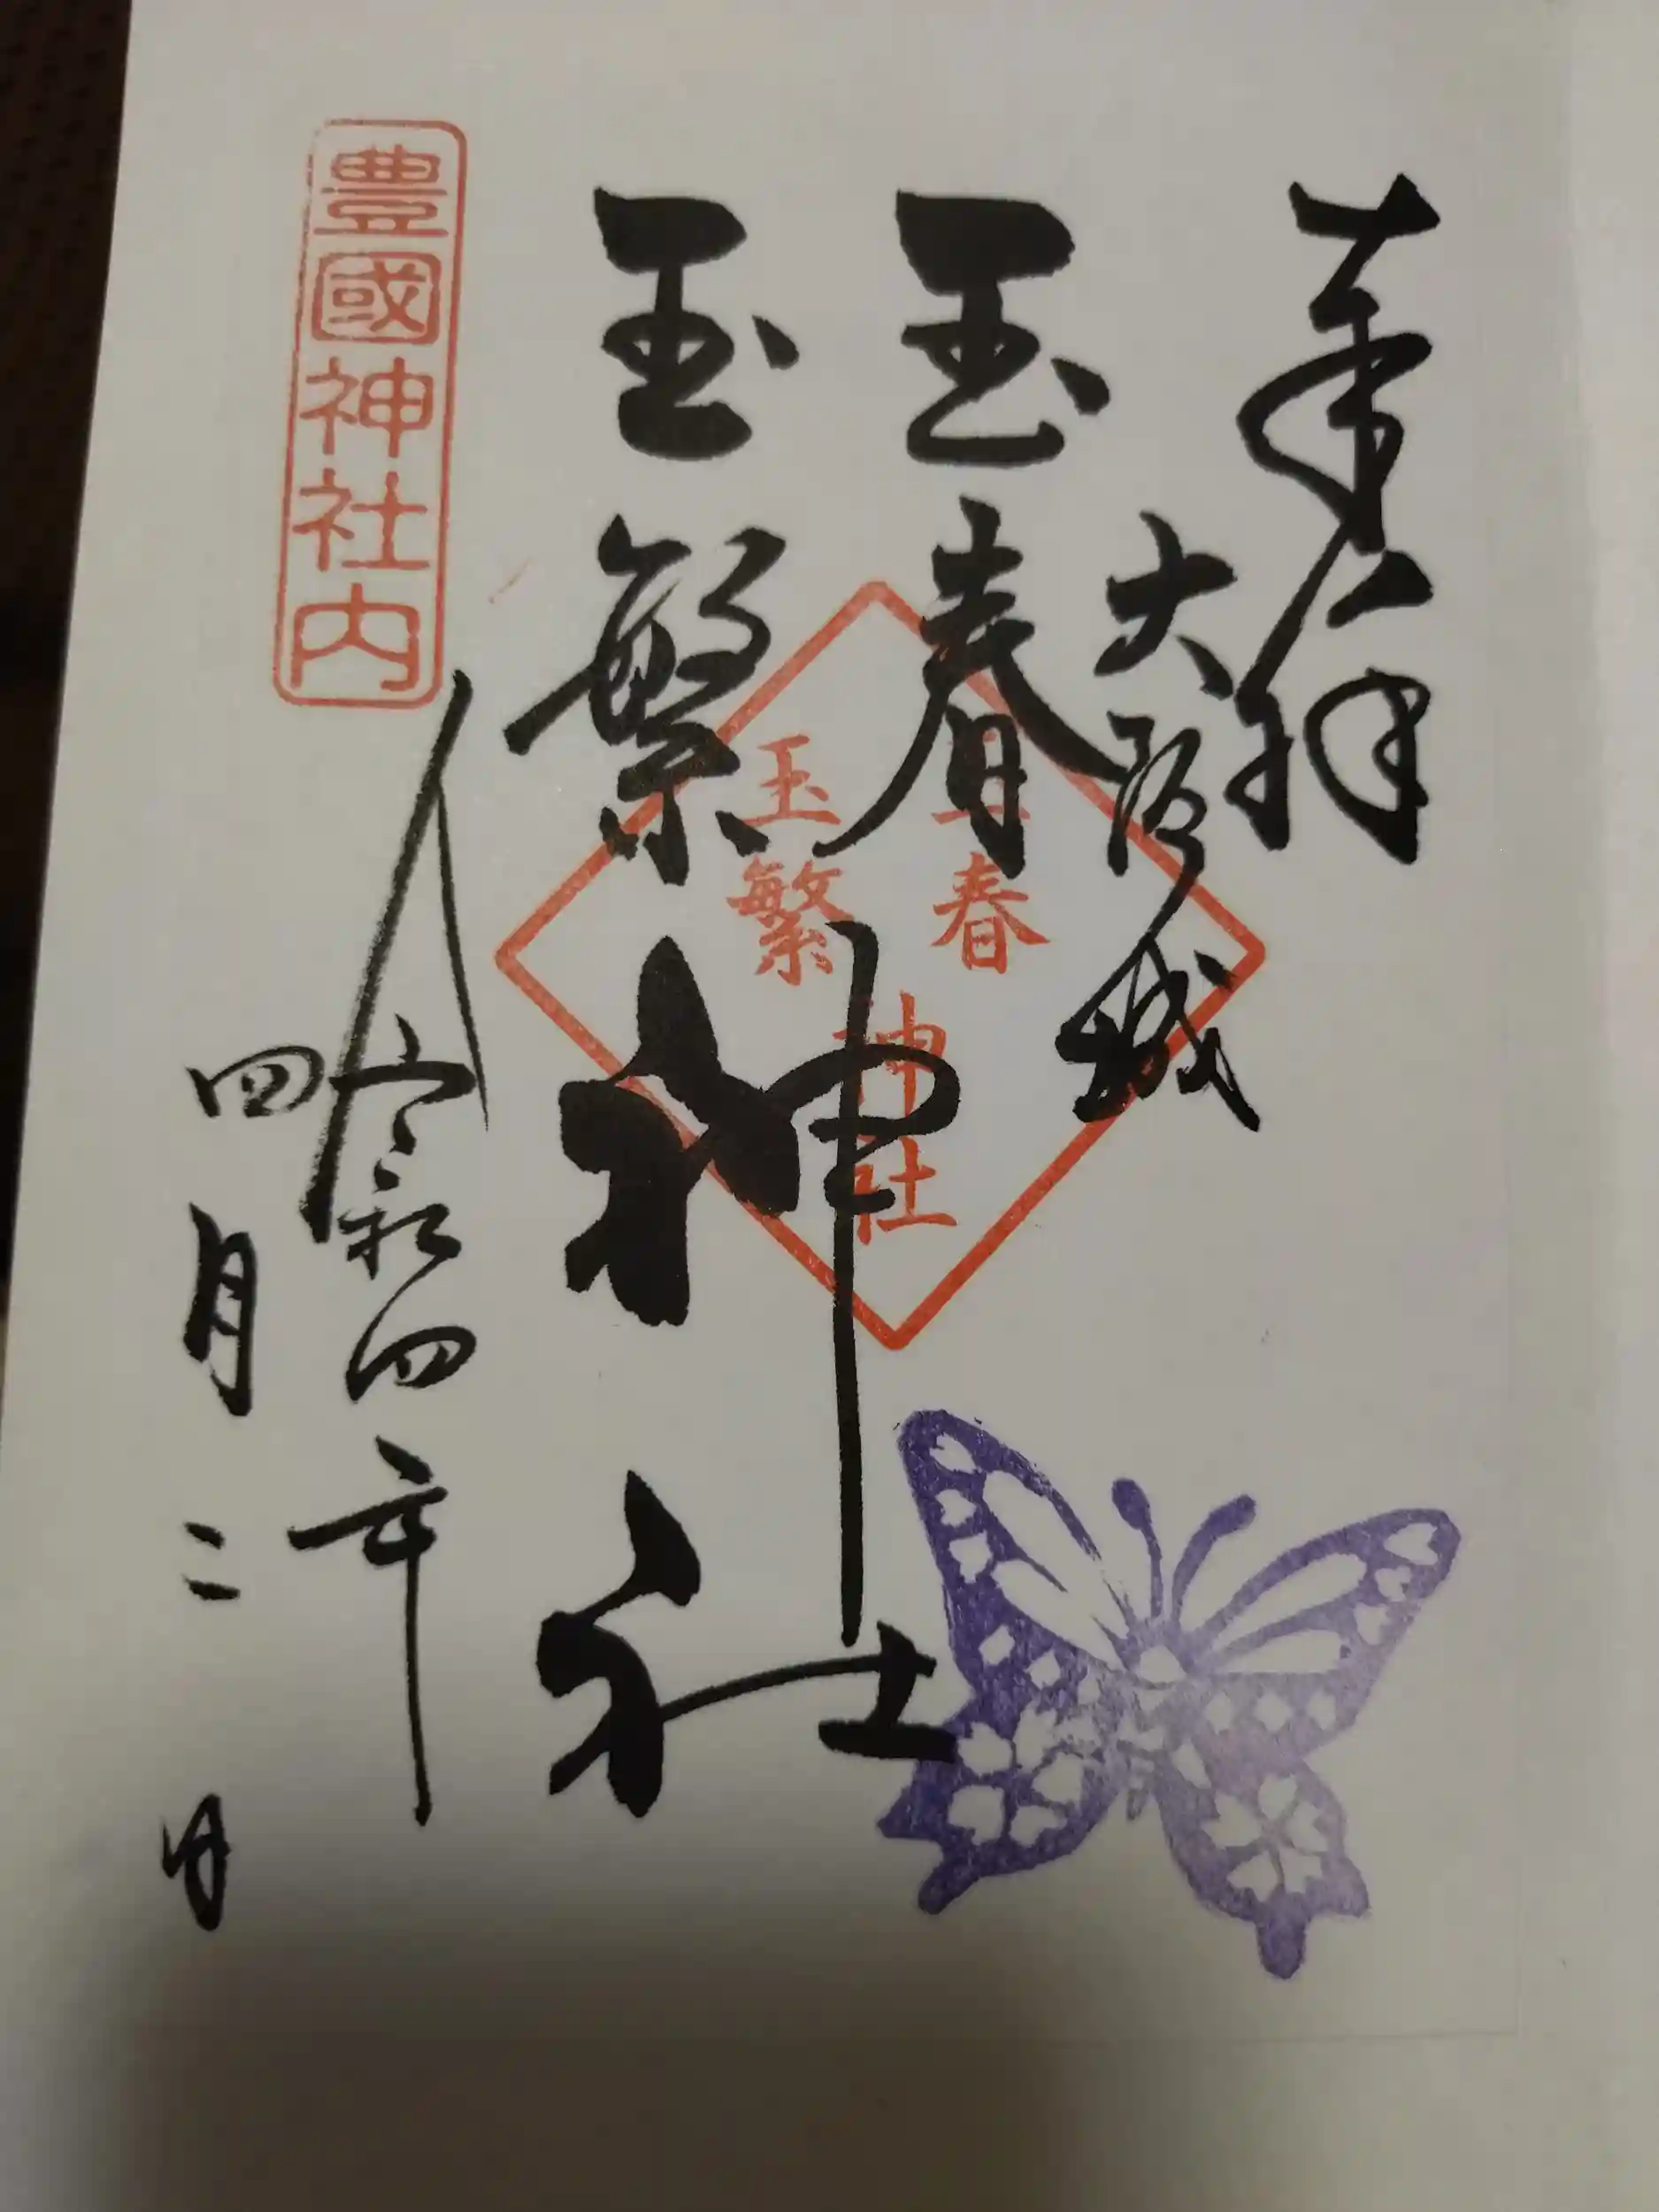 奉拝
大阪城
玉春
玉繁
神社
玉春
玉繁
神社
豊國神社内
令和四年
四月二日